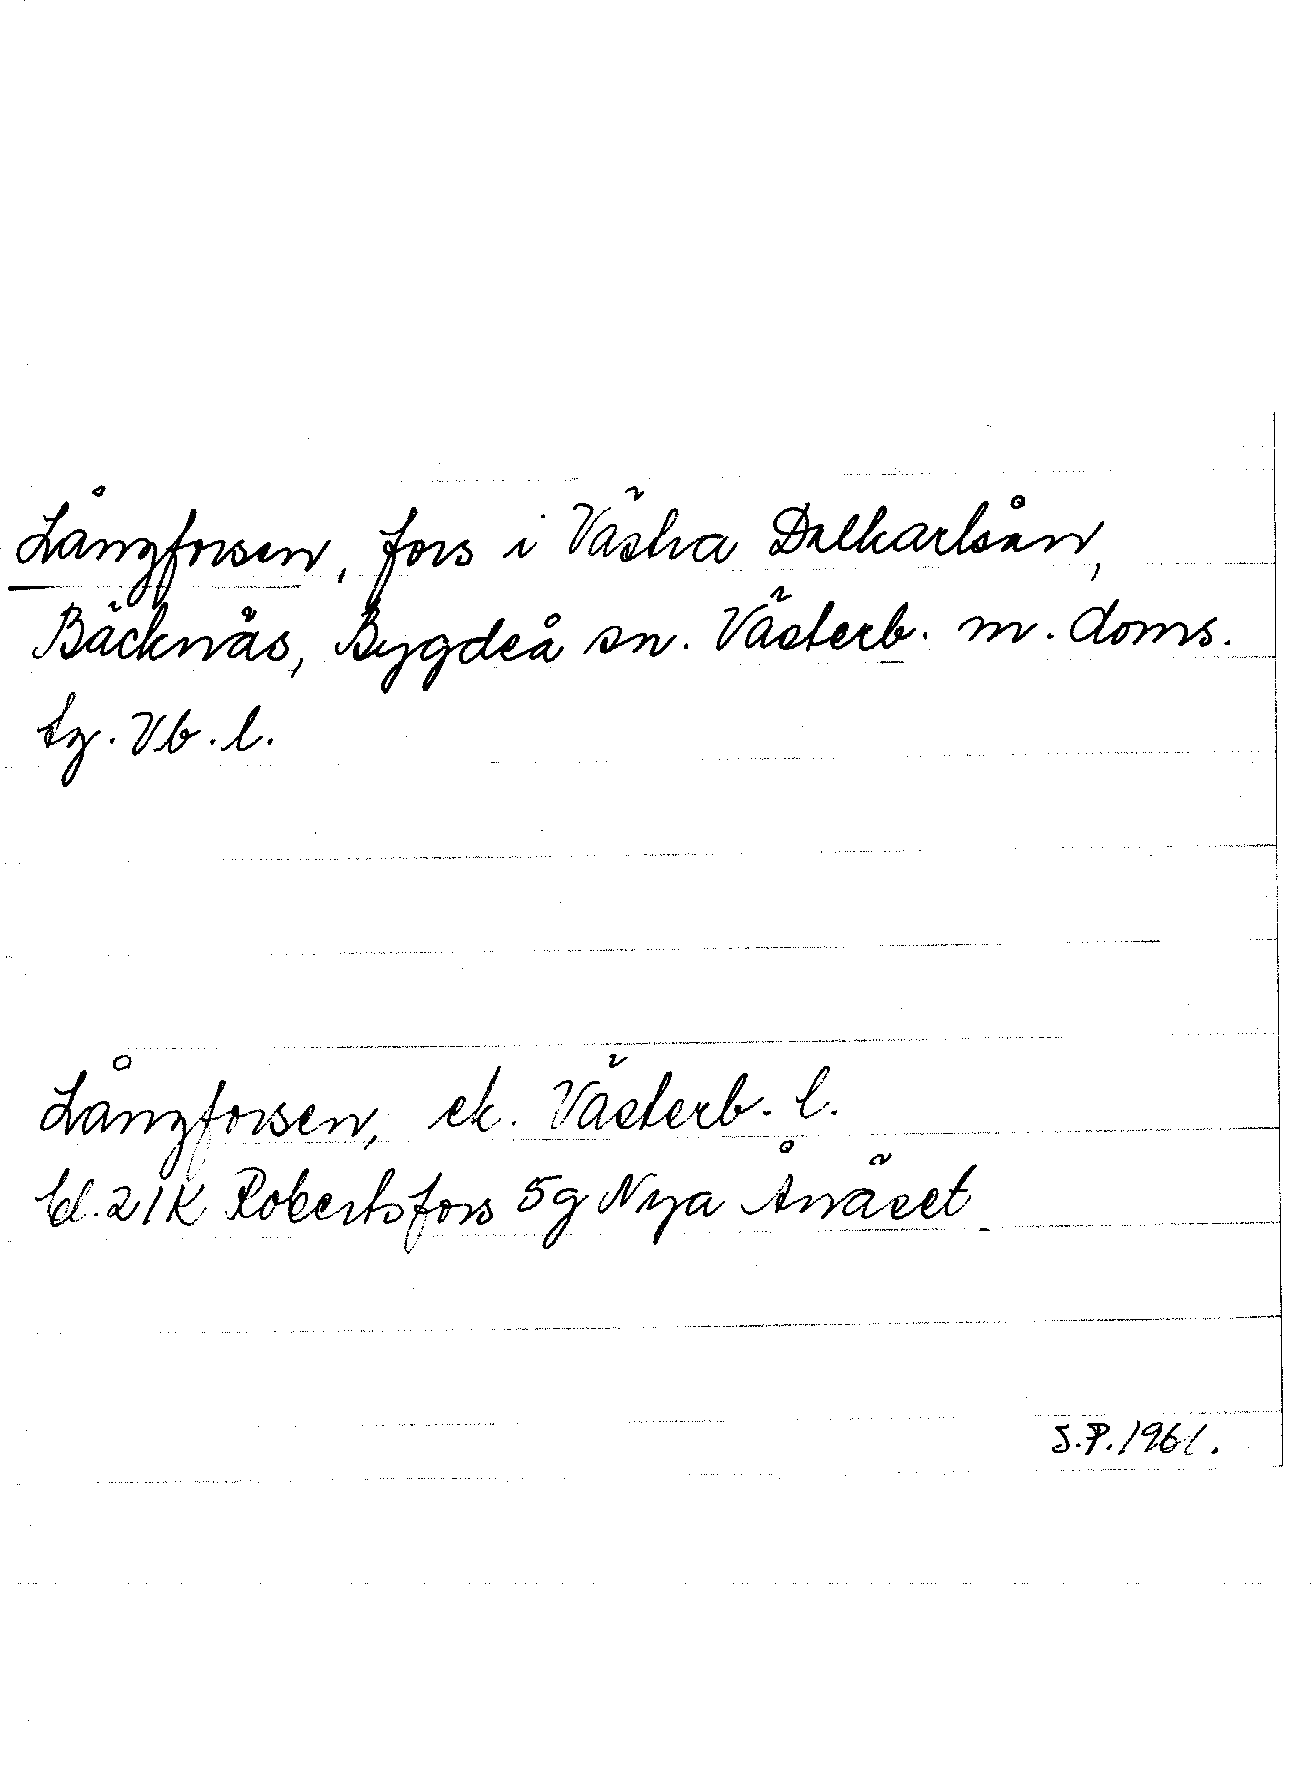 Långforsen, fors i Västra Dalkarlsån,
Bäcknäs, Bygdeå sn. Västerb. m. doms.
tg. Vb. l.
Långforsen, ek. Västerb. l.
bl. 21K Robertsfors 5g Nya Ånäset
S.P. 1961.